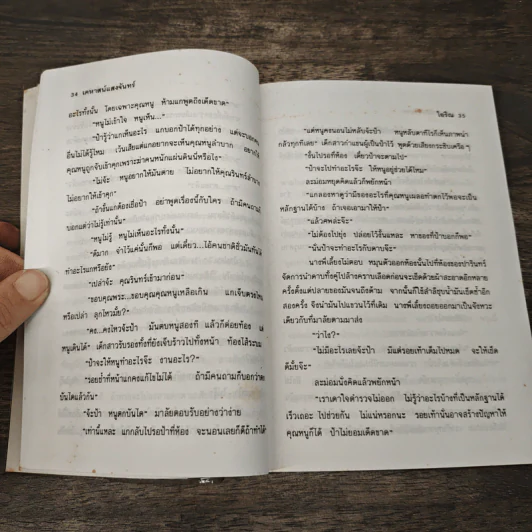 34 เคหาสน์แสงจันทร์
อะไรทั้งนั้น โดยเฉพาะคุณหนู ห้ามแกพูดถึงเด็ดขาด”
“หนูไม่เข้าใจ หนูเห็น...”
“ป้ารู้ว่าแกเห็นอะไร แกบอกป้าได้ทุกอย่าง แต่จะบอกคน
อื่นไม่ได้รู้ไหม เว้นเสียแต่แกอยากจะเห็นคุณหนูลำบาก อยากให้
คุณหนูถูกจับเข้าคุกเพราะฆ่าคนหนักแผ่นดินนั่นหรือไง”
“ไม่จ้ะ หนูอยากให้มันตาย ไม่อยากให้คุณรินทร์ลำบาก
ไม่อยากให้เข้าคุก”
“ถ้างั้นแกต้องเชื่อป้า อย่าพูดเรื่องนี้กับใคร ถ้ามีคนถาม
บอกแต่ว่าไม่รู้เท่านั้น”
“หนูไม่รู้ หนูไม่เห็นอะไรทั้งนั้น”
“ดีมาก จำไว้แค่นั้นก็พอ แต่เดี๋ยว...ไอ้คนชาติชั่วมันทันได้
ทำอะไรแกหรือยัง”
“เปล่าจ้ะ คุณรินทร์เข้ามาก่อน”
“ขอบคุณพระ...ขอบคุณคุณหนูเหลือเกิน แกเจ็บตรงไหน
หรือเปล่า ลุกไหวมั้ย?”
“คง...คงไหวจ้ะป้า มันตบหนูสองที แล้วก็ต่อยท้อง แต่
หนูเดินได้” เด็กสาวรับรองทั้งที่ยังเจ็บร้าวไปทั้งหน้า ท้องไส้ระบม
“ป้าจะให้หนูทำอะไรจ๊ะ งานอะไร?”
“รอยช้ำที่หน้าแกคงแก้ไขไม่ได้ ถ้ามีคนถามก็บอกว่าตก
บันไดแล้วกัน”
“จ้ะป้า หนูตกบันได” มาลัยตอบรับอย่างว่าง่าย
“เท่านี้แหละ แกกลับไปรอป้าที่ห้อง จะนอนเลยก็ดีถ้าทำได้”
โสริณ 35
“แต่หนูคงนอนไม่หลับจ้ะป้า หนูหลับตาทีไรก็เห็นภาพน่า
กลัวทุกทีเลย” เด็กสาวกำแขนผู้เป็นป้าไว้ พูดด้วยเสียงกระซิบเครือ ๆ
“งั้นไปรอที่ห้อง เดี๋ยวป้าจะตามไป”
“ป้าจะไปทำอะไรจ๊ะ ให้หนูอยู่ช่วยได้ไหม”
ละม่อมหยุดคิดแล้วก็พยักหน้า
“แกลองหาดูว่ามีของอะไรที่คุณหนูเผลอทำตกไว้พอจะเป็น
หลักฐานได้บ้าง ถ้าเจอเอามาให้ป้า”
“แล้วศพล่ะจ๊ะ”
“ไม่ต้องไปยุ่ง ปล่อยไว้งั้นแหละ หาของที่ป้าบอกก็พอ”
“นั่นป้าจะทำอะไรกับดาบจ๊ะ”
นางพี่เลี้ยงไม่ตอบ หมุนตัวออกห้องนั้นไปที่ห้องของปารินทร์
จัดการนำดาบทั้งคู่ไปล้างคราบเลือดก่อนจะเช็ดด้วยผ้าสะอาดอีกหลาย
ครั้งตั้งแต่ปลายของมันจนถึงด้าม จากนั้นก็ใช้สำลีชุบน้ำมันเช็ดซ้ำอีก
สองครั้ง จึงนำมันไปแขวนไว้ที่เดิม นางพี่เลี้ยงถอยออกมาเป็นจังหวะ
เดียวกับที่มาลัยตามมาส่ง
“ว่าไง?”
“ไม่มีอะไรเลยจ้ะป้า มีแต่รอยเท้าเต็มไปหมด จะให้เช็ด
ดีมั้ยจ๊ะ”
ละม่อมนิ่งคิดแล้วพยักหน้า
“เราเดาใจตำรวจไม่ออก ไม่รู้ว่าอะไรบ้างที่เป็นหลักฐานได้
เร็วเถอะ ไปช่วยกัน ไม่แน่หรอกนะ รอยเท้านั่นอาจสร้างปัญหาให้
คุณหนูก็ได้ ป้าไม่ยอมเด็ดขาด”